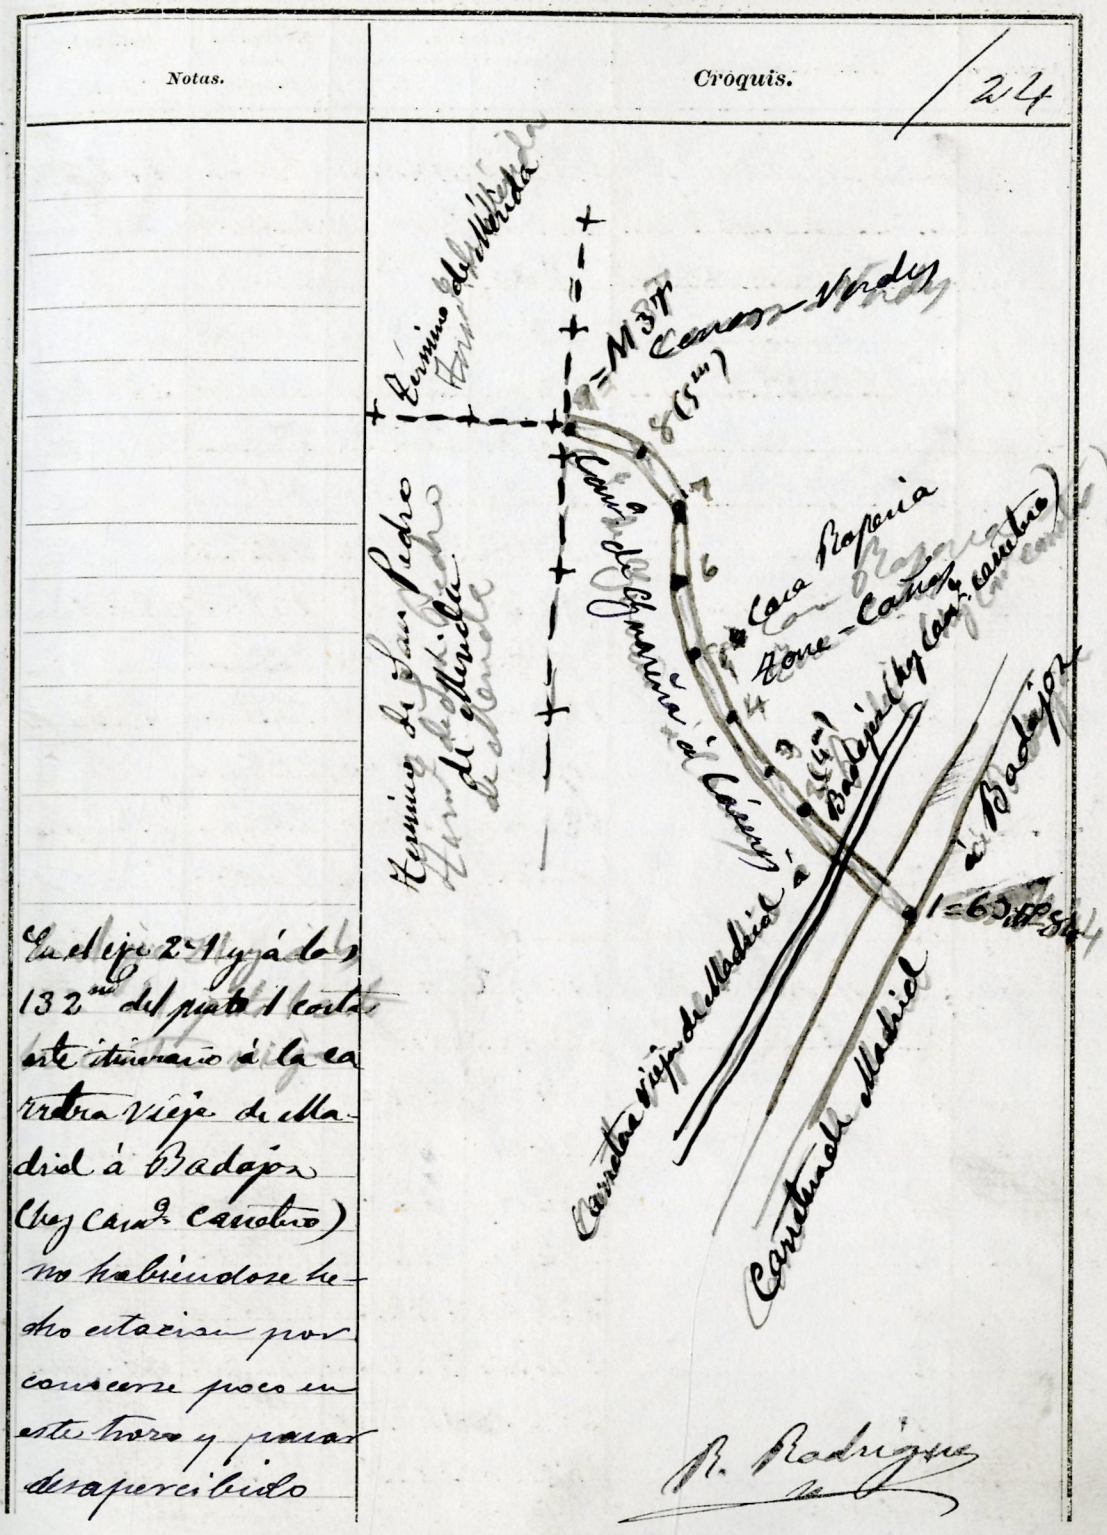 Notas.
Cróquis.
/24
Término de Mérida
Término de San Pedro
de Mérida
9=M3T
Cerros Verdes
8(5m)
7
6
5
Casa Raperia
Torre-Caños
4
3
2(4m)
Camº de a Cáceres
Carretera vieja de Madrid á
Badajoz (hoy Camº carretero)
Carretera de Madrid
á Badajoz
1=63
En el eje 2-1 y á los
132m del punto 1 corta
este itinerario á la ca
rretra vieja de Ma-
drid á Badajoz
(hoy camº carretero)
no habiéndose he-
cho estacion por
conocerse poco en
este trozo y pasar
desapercibido
R. Rodriguez